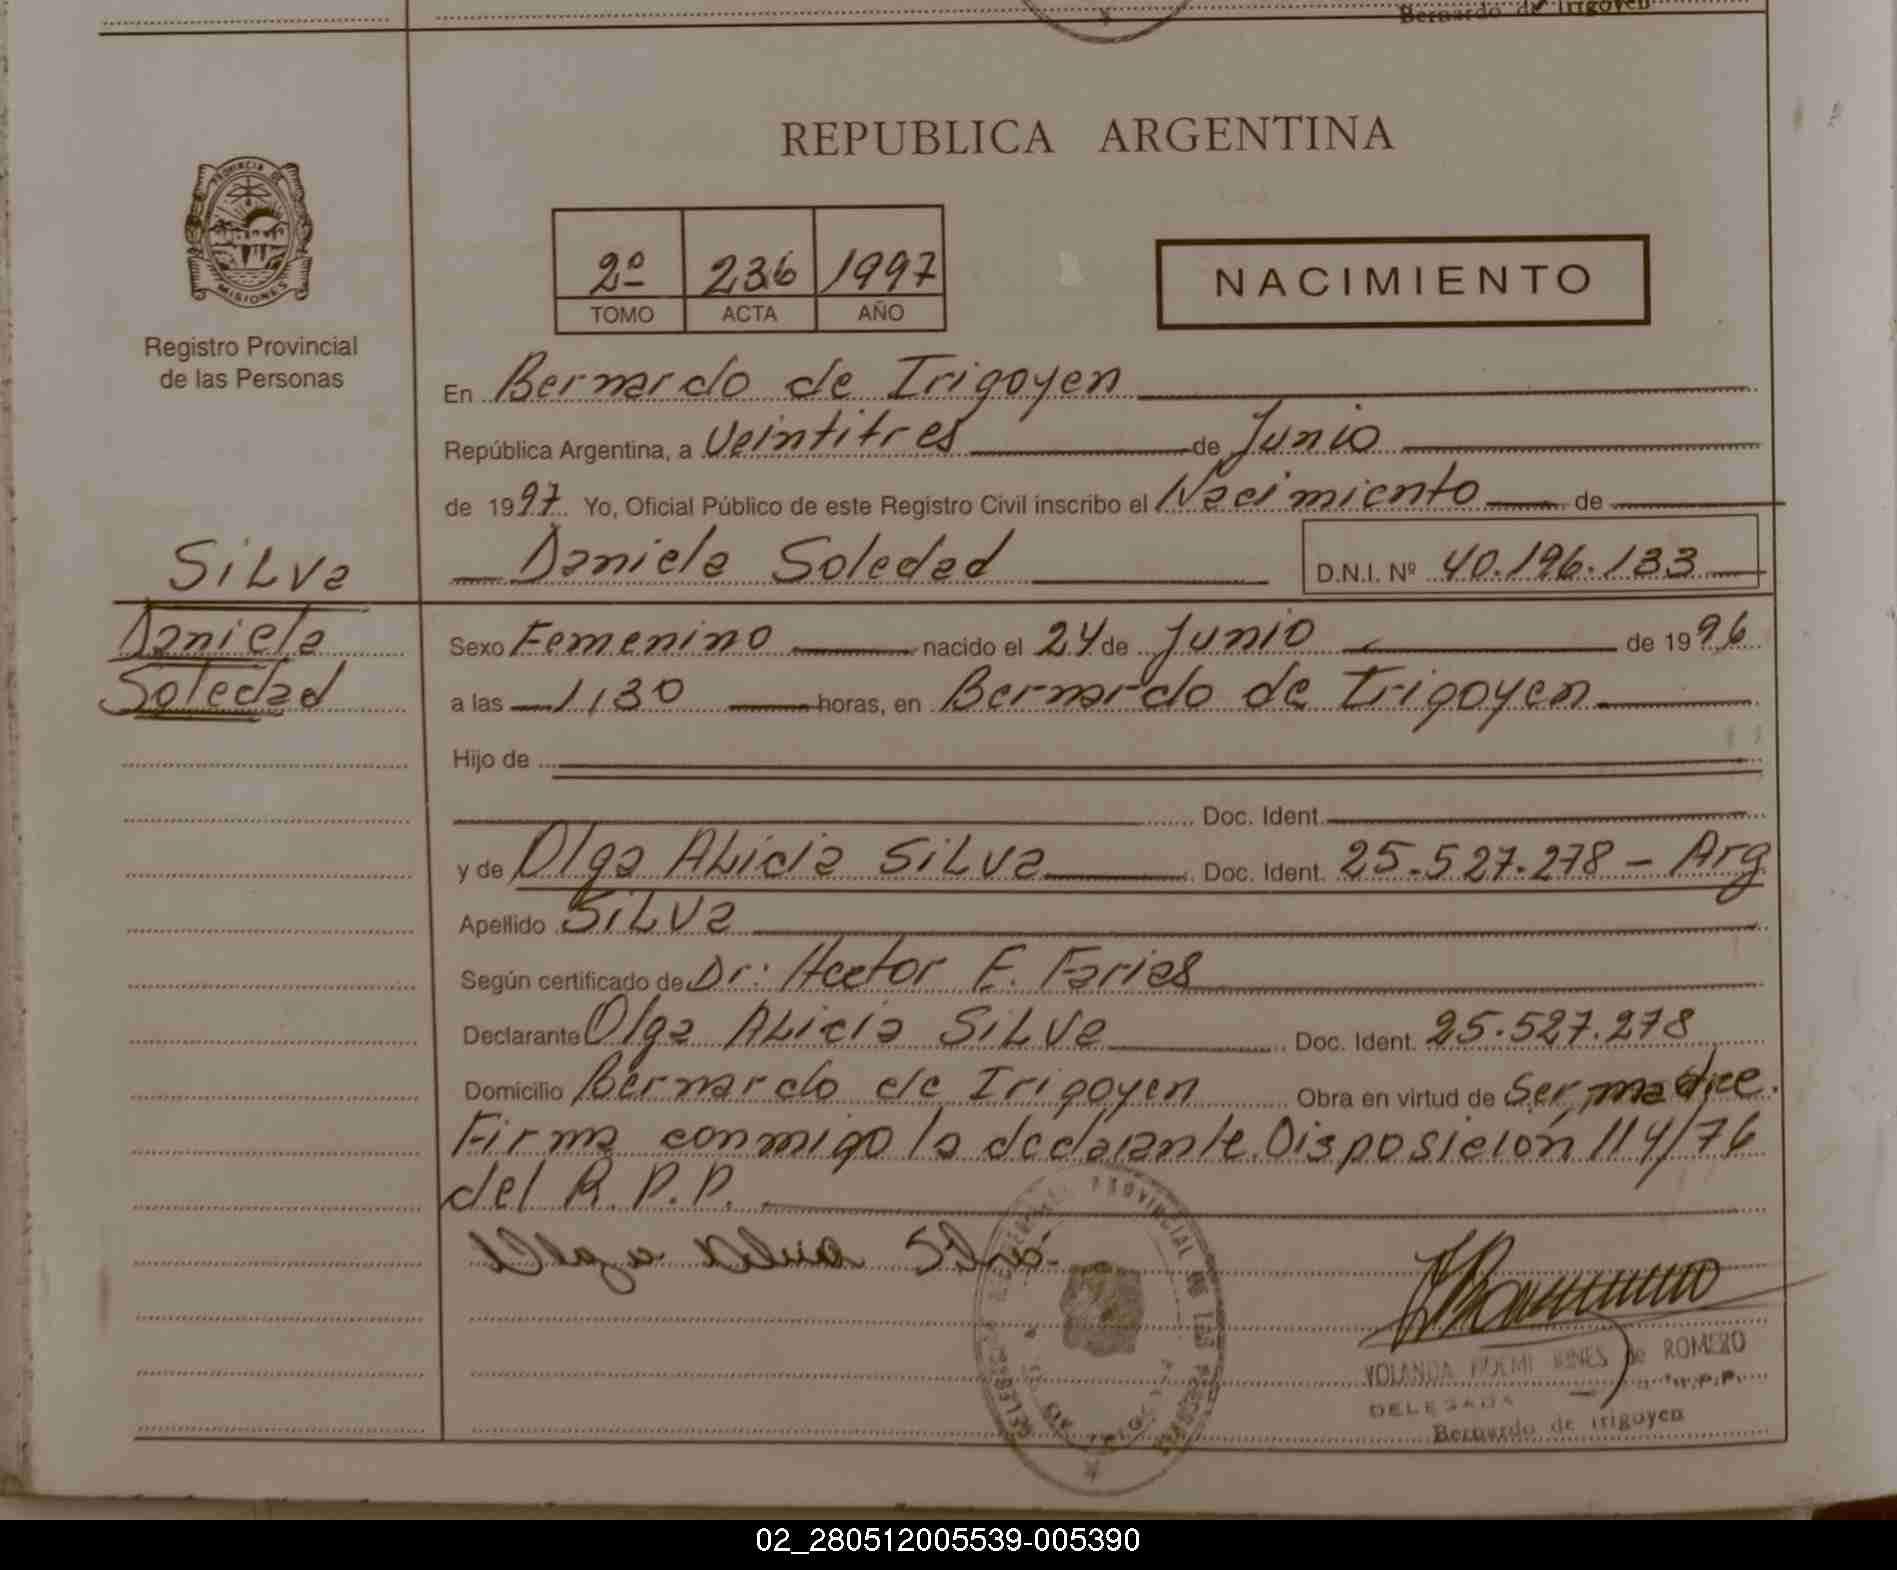 Bernardo de Irigoyen
REPUBLICA ARGENTINA
PROVINCIA DE
MISIONES
Registro Provincial
de las Personas
2º 236 1997
TOMO ACTA AÑO
NACIMIENTO
En Bernardo de Irigoyen
República Argentina, a Veintitres de Junio
de 1997 Yo, Oficial Público de este Registro Civil inscribo el Nacimiento de
Daniela Soledad D.N.I. Nº 40.196.133
SiLva
Daniela
Soledad
Sexo Femenino nacido el 24 de Junio de 1996
a las 1,30 horas, en Bernardo de Irigoyen
Hijo de
Doc. Ident.
y de Olga ALicia SiLva Doc. Ident. 25.527.278 - Arg
Apellido SiLva
Según certificado de Dr: Hector E. Farias
Declarante Olga ALicia SiLva Doc. Ident. 25.527.278
Domicilio Bernardo de Irigoyen Obra en virtud de Ser, madre.
Firma conmigo la declarante. Disposición 114/76
del R.P.P.
Olga Silva
PROVINCIAL DE LAS PERSONAS
YOLANDA NOEMI de ROMERO
DELEGADA R.P.P.
Bernardo de Irigoyen
02_280512005539-005390